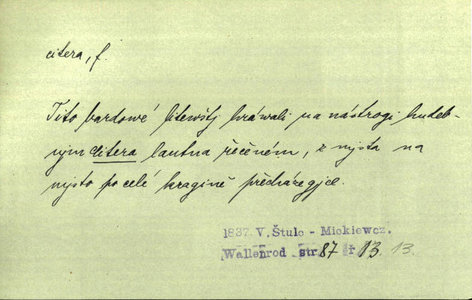 citera, f.
Tito bardowé litewštj hráwali na nástrogi hudeb-
nym citera lautna řečeném, z mjsta na
mjsto po celé kragině přecházegjce.
1837. V. Štulc - Mickiewcz.
Wallenrod str. 87 ř. 13. 13.